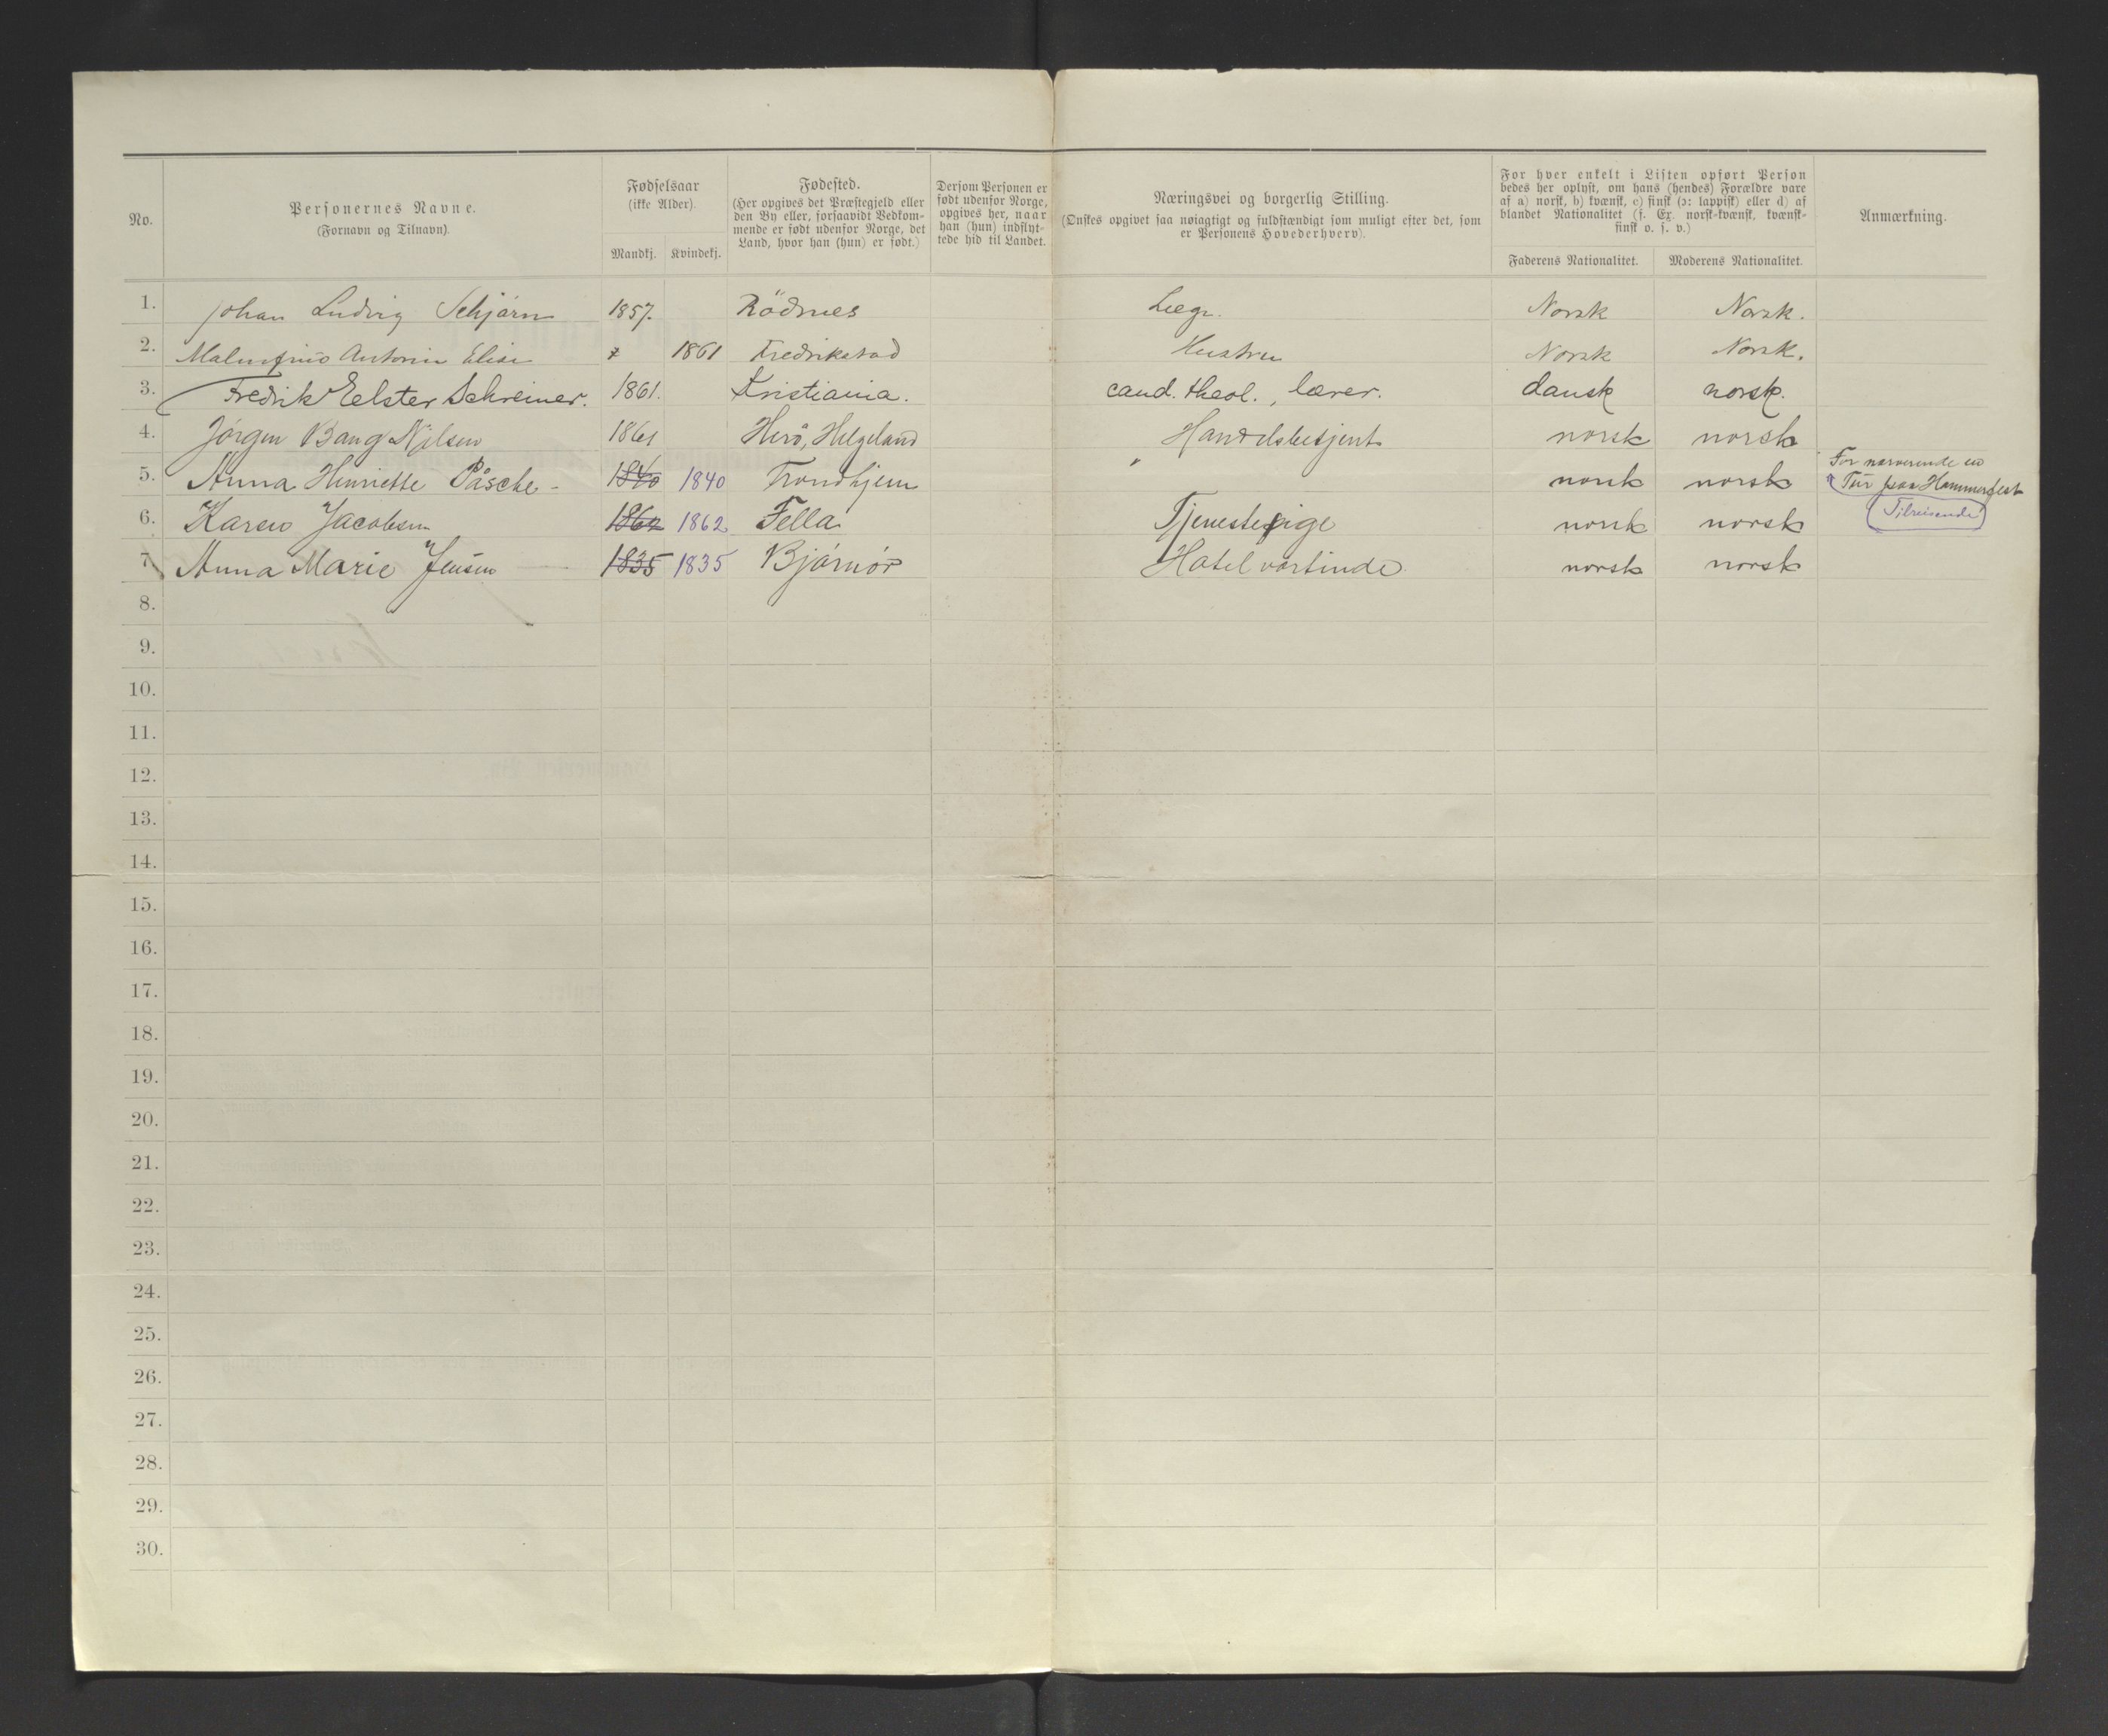 No.
Personernes Navne.
(Fornavn og Tilnavn).
Fødselsaar
(ikke Alder).
Mandkj. Kvindekj.
Fødested.
(Her opgives det Præstegjeld eller
den By eller, forsaavidt Vedkom-
mende er født udenfor Norge, det
Land, hvor han (hun) er født.)
Dersom Personen er
født udenfor Norge,
opgives her, naar
han (hun) indflyt-
tede hid til Landet.
Næringsvei og borgerlig Stilling.
(Ønskes opgivet saa nøiagtigt og fuldstændigt som muligt efter det, som
er Personens Hovederhverv).
For hver enkelt i Listen opført Person
bedes her oplyst, om hans (hendes) Forældre vare
af a) norsk, b) kvænsk, c) finsk (ɔ: lappisk) eller d) af
blandet Nationalitet (f. Ex. norsk-kvænsk, kvænsk-
finsk o. s. v.)
Faderens Nationalitet. Moderens Nationalitet.
Anmærkning.
1. Johan Ludvig 1857. Rödnes Læge. Norsk Norsk.
2. Antonie Elise 1861 Fredrikstad Hustru Norsk Norsk.
3. Fredrik Eelster Schreiner. 1861. Kristiania. cand. theol., lærer. dansk norsk.
4. Jörgen Bang Nilsen 1861 Herö, Helgeland Handelsbetjent norsk norsk
5. Anna Henriette Påsche - 1840 1840 Trondhjem " norsk norsk For nærværende en
Tur paa Hammerfest
(Tilreisende)
6. Karen Jacobsen 1862 1862 Fella Tjenestepige norsk norsk
7. Anna Marie Jensen 1835 1835 Bjørnör Hotelvärtinde norsk norsk
8.
9.
10.
11.
12.
13.
14.
15.
16.
17.
18.
19.
20.
21.
22.
23.
24.
25.
26.
27.
28.
29.
30.